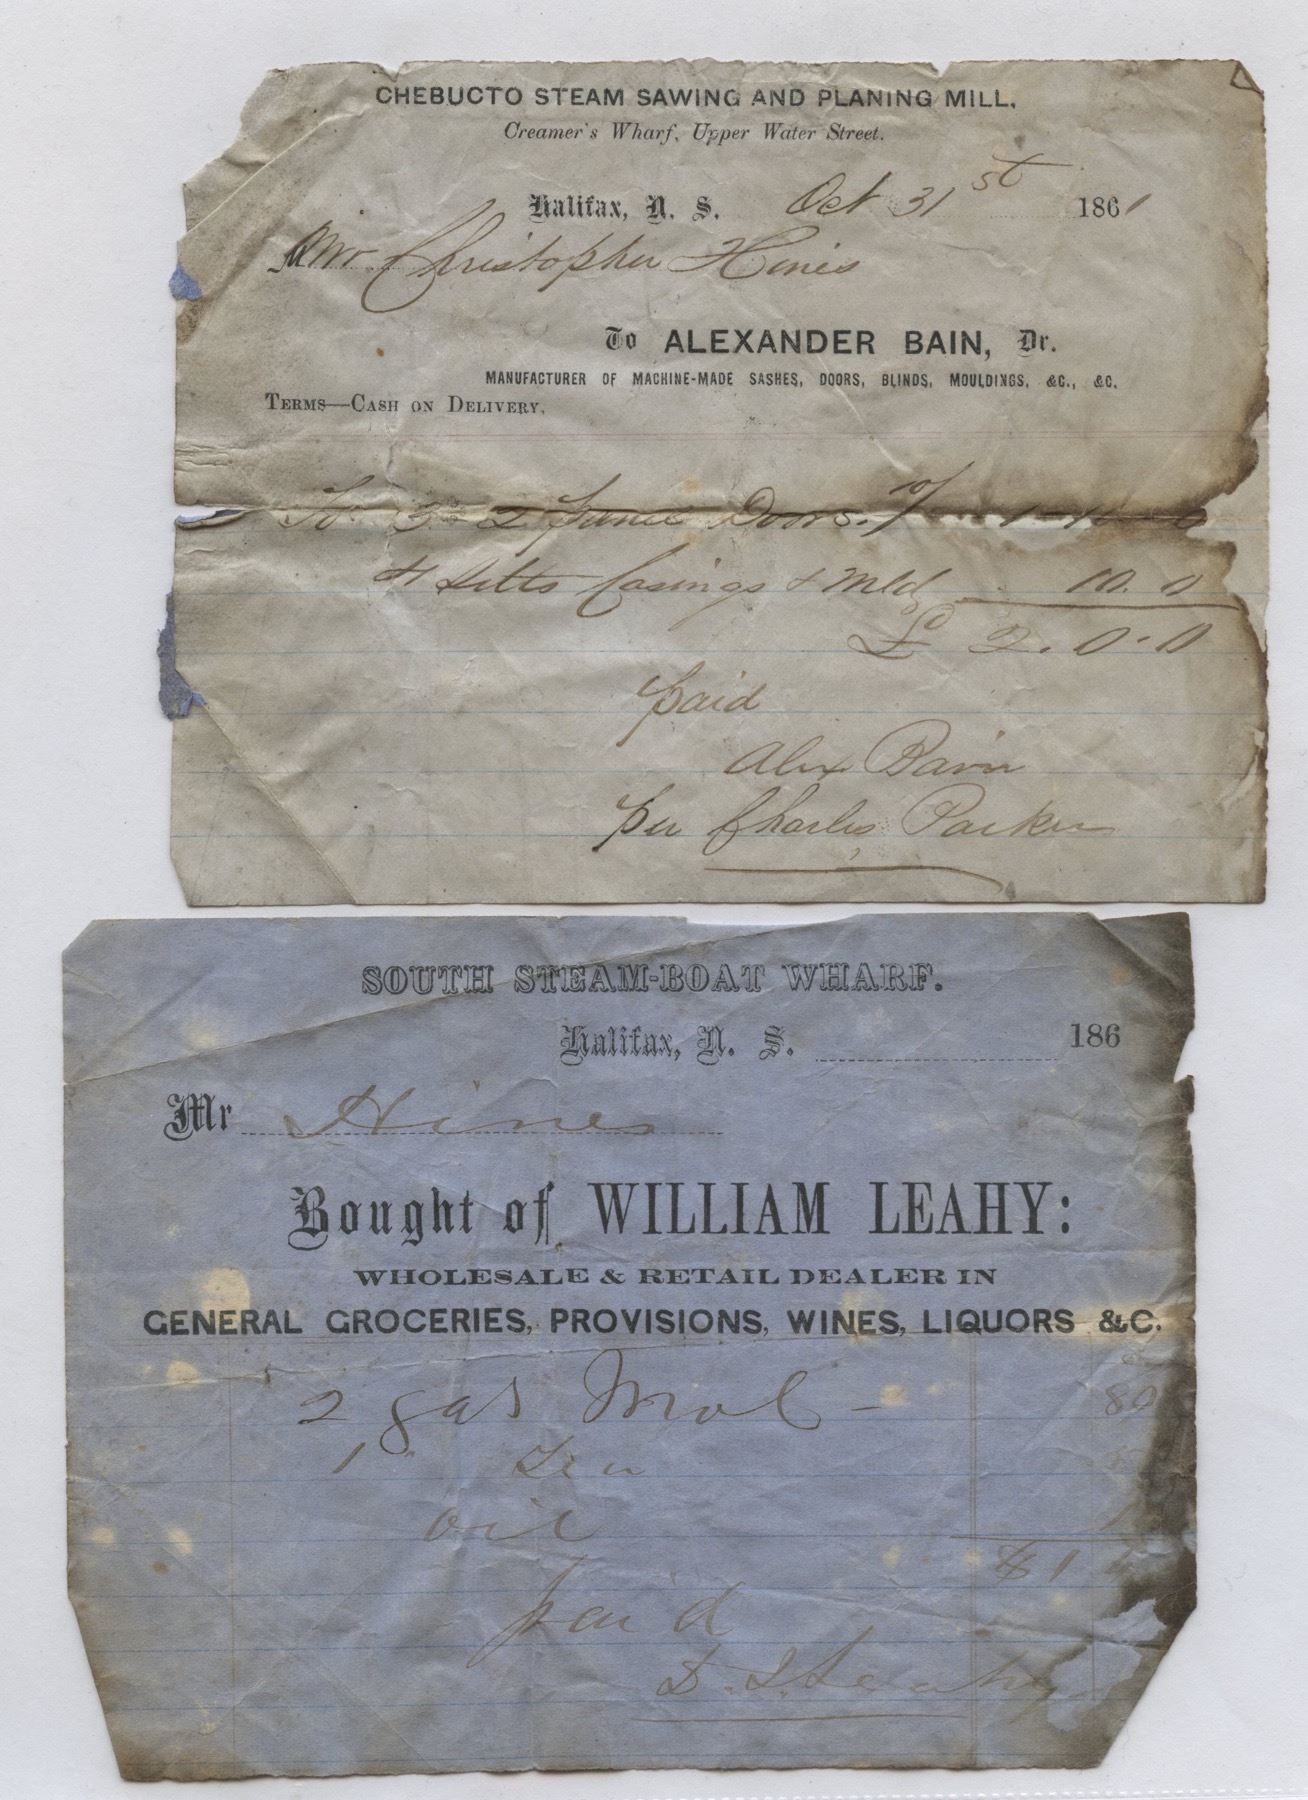 CHEBUCTO STEAM SAWING AND PLANING MILL,
Creamer's Wharf, Upper Water Street.
Halifax, N. S. Oct 31st 1861
Mr Christopher Hines
To ALEXANDER BAIN, Dr.
MANUFACTURER OF MACHINE-MADE SASHES, DOORS, BLINDS, MOULDINGS, &C., &C.
TERMS—CASH ON DELIVERY.
To 3 - 2 Panel Doors 10/ 1 - 10 - 0
Casings & Mld 10. 0
£ 2. 0. 0
paid
Alex Bain
per Charles Parker
SOUTH STEAM-BOAT WHARF.
Halifax, N. S. 186
Mr Hines
Bought of WILLIAM LEAHY:
WHOLESALE & RETAIL DEALER IN
GENERAL GROCERIES, PROVISIONS, WINES, LIQUORS &C.
2 gas Mol - 80
1 " Tea
oil
$1
paid
Leahy